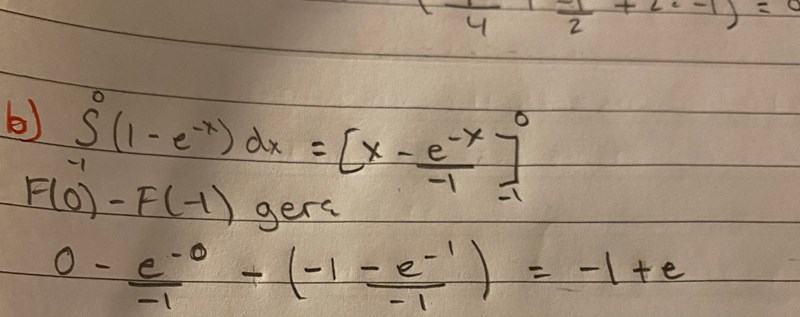 4 2 + 2 · -1) = 0
b) ∫₋₁⁰ (1 - e^-x) dx = [x - e^-x/-1]₋₁⁰
F(0) - F(-1) gera
0 - e^-0/-1 - (-1 - e^-1/-1) = -1 + e